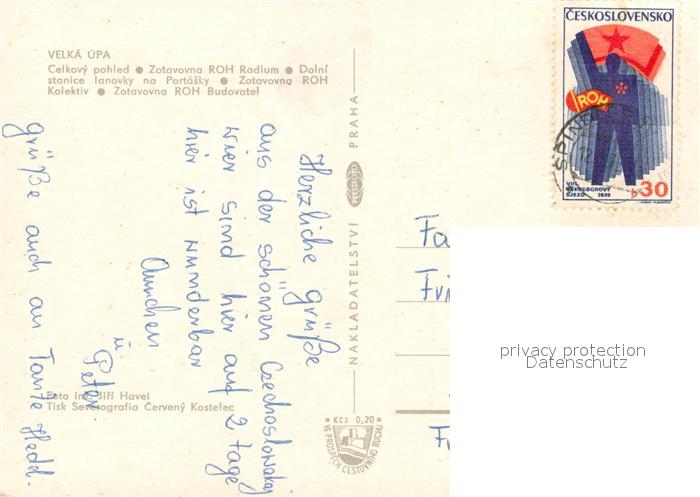 VELKÁ ÚPA
Celkový pohled ● Zotavovna ROH Radium ● Dolní
stanice lanovky na Portášky ● Zotavovna ROH
Kolektiv ● Zotavovna ROH Budovatel
Herzliche Grüße
aus der schönen Czechoslowakey
wier sind hier auf 2 tage
hier ist wunderbar
Annchen
u
Peter.
Grüße auch an Tante Hedd.
Foto Ing. Jiří Havel
Tisk Severografia Červený Kostelec
NAKLADATELSTVÍ PRESSFOTO PRAHA
Kčs 0,20
VE PROSPĚCH CESTOVNÍHO RUCHU
ČESKOSLOVENSKO
ROH
VIII.
VŠEODBOROVÝ
SJEZD 1972
30
ŠPIND
Fa
Fri
privacy protection
Datenschutz